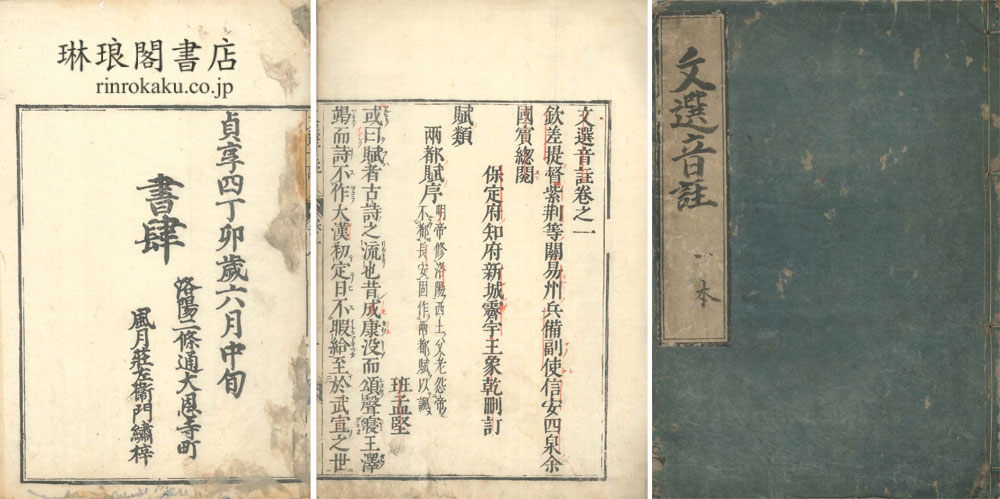 琳琅閣書店
rinrokaku.co.jp
貞享四丁卯歳六月中旬
書肆
洛陽二條通大恩寺町
風月莊左衛門繡梓
文選音註卷之一
欽差提督紫荆等關易州兵備副使信安四泉余
國賓總閱
保定府知府新城霽宇王象乾刪訂
賦類
兩都賦序
明帝修洛陽西土父老怨帝
不都長安固作兩都賦以諷
班孟堅
或曰賦者古詩之流也昔成康没而頌聲寢王澤
竭而詩不作大漢初定日不暇給至於武宣之世
文選音註
本